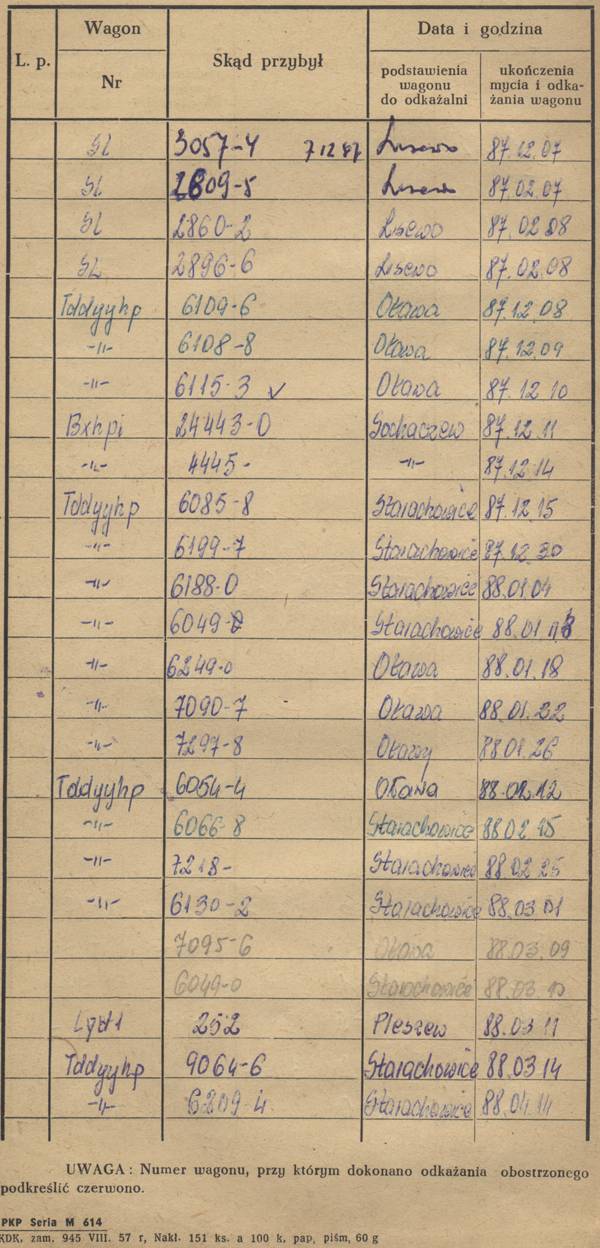 L. p. Wagon Nr Skąd przybył Data i godzina
podstawienia wagonu do odkażalni
ukończenia mycia i odka-
żania wagonu
3057-4 7 12 87 87.12.07
2809-5 87.02.07
2860-2 Lisewo 87.02.08
2896-6 Lisewo 87.02.08
Tddyyhp 6109-6 Oława 87.12.08
-"- 6108-8 Oława 87.12.09
-"- 6115-3 v Oława 87.12.10
Bxhpi 24443-0 Sochaczew 87.12.11
-"- 4445- -"- 87.12.14
Tddyyhp 6085-8 Starachowice 87.12.15
-"- 6199-7 Starachowice 87.12.30
-"- 6188-0 Starachowice 88.01.04
-"- Starachowice 88.01
-"- 6249-0 Oława 88.01.18
-"- 7090-7 Oława 88.01.22
-"- 7297-8 Oławy 88.01.26
Tddyyhp 6054-4 Oława 88.02.12
-"- 6066-8 Starachowice 88.02.15
-"- 7218- Starachowice 88.02.25
-"- 6130-2 Starachowice 88.03.01
7095-6 Oława 88.03.09
6049-0 Starachowice 88.03.10
252 Pleszew 88.03.11
Tddyyhp 9064-6 Starachowice 88.03.14
-"- 6209-4 Starachowice 88.04.14
UWAGA: Numer wagonu, przy którym dokonano odkażania obostrzonego
podkreślić czerwono.
PKP Seria M 614
KDK, zam. 945 VIII. 57 r, Nakł. 151 ks. a 100 k, pap, piśm, 60 g